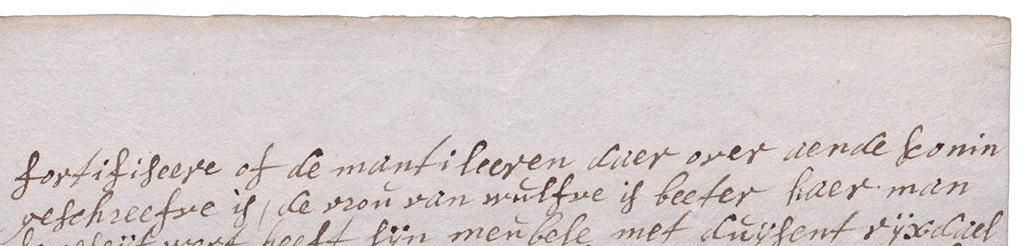 fortifiseere of de mantileeren daer over aende konin
geschreefve is, de vrou van wulfve is beeter haer man
heeft sijn meubele met duijsent rijxdael